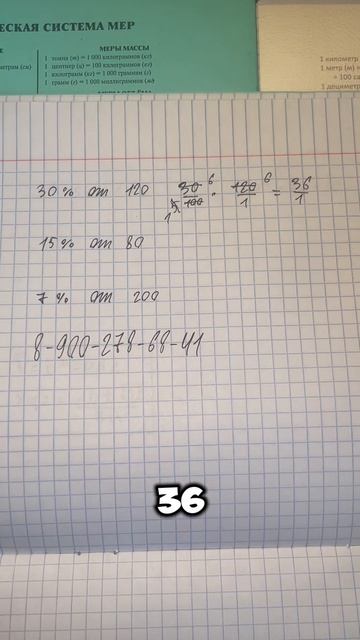 ЕСКАЯ СИСТЕМА МЕР
МЕРЫ МАССЫ
1 тонна (т) = 1 000 килограммов (кг)
1 центнер (ц) = 100 килограммов (кг)
1 килограмм (кг) = 1 000 граммам (г)
1 грамм (г) = 1 000 миллиграммов (мг)
1 километр
1 метр (м) =
= 100 са
1 дециметр
30 % от 120 30/100 6 5 1 · 120/1 6 = 36/1
15 % от 80
7 % от 200
8-900-278-68-41
36